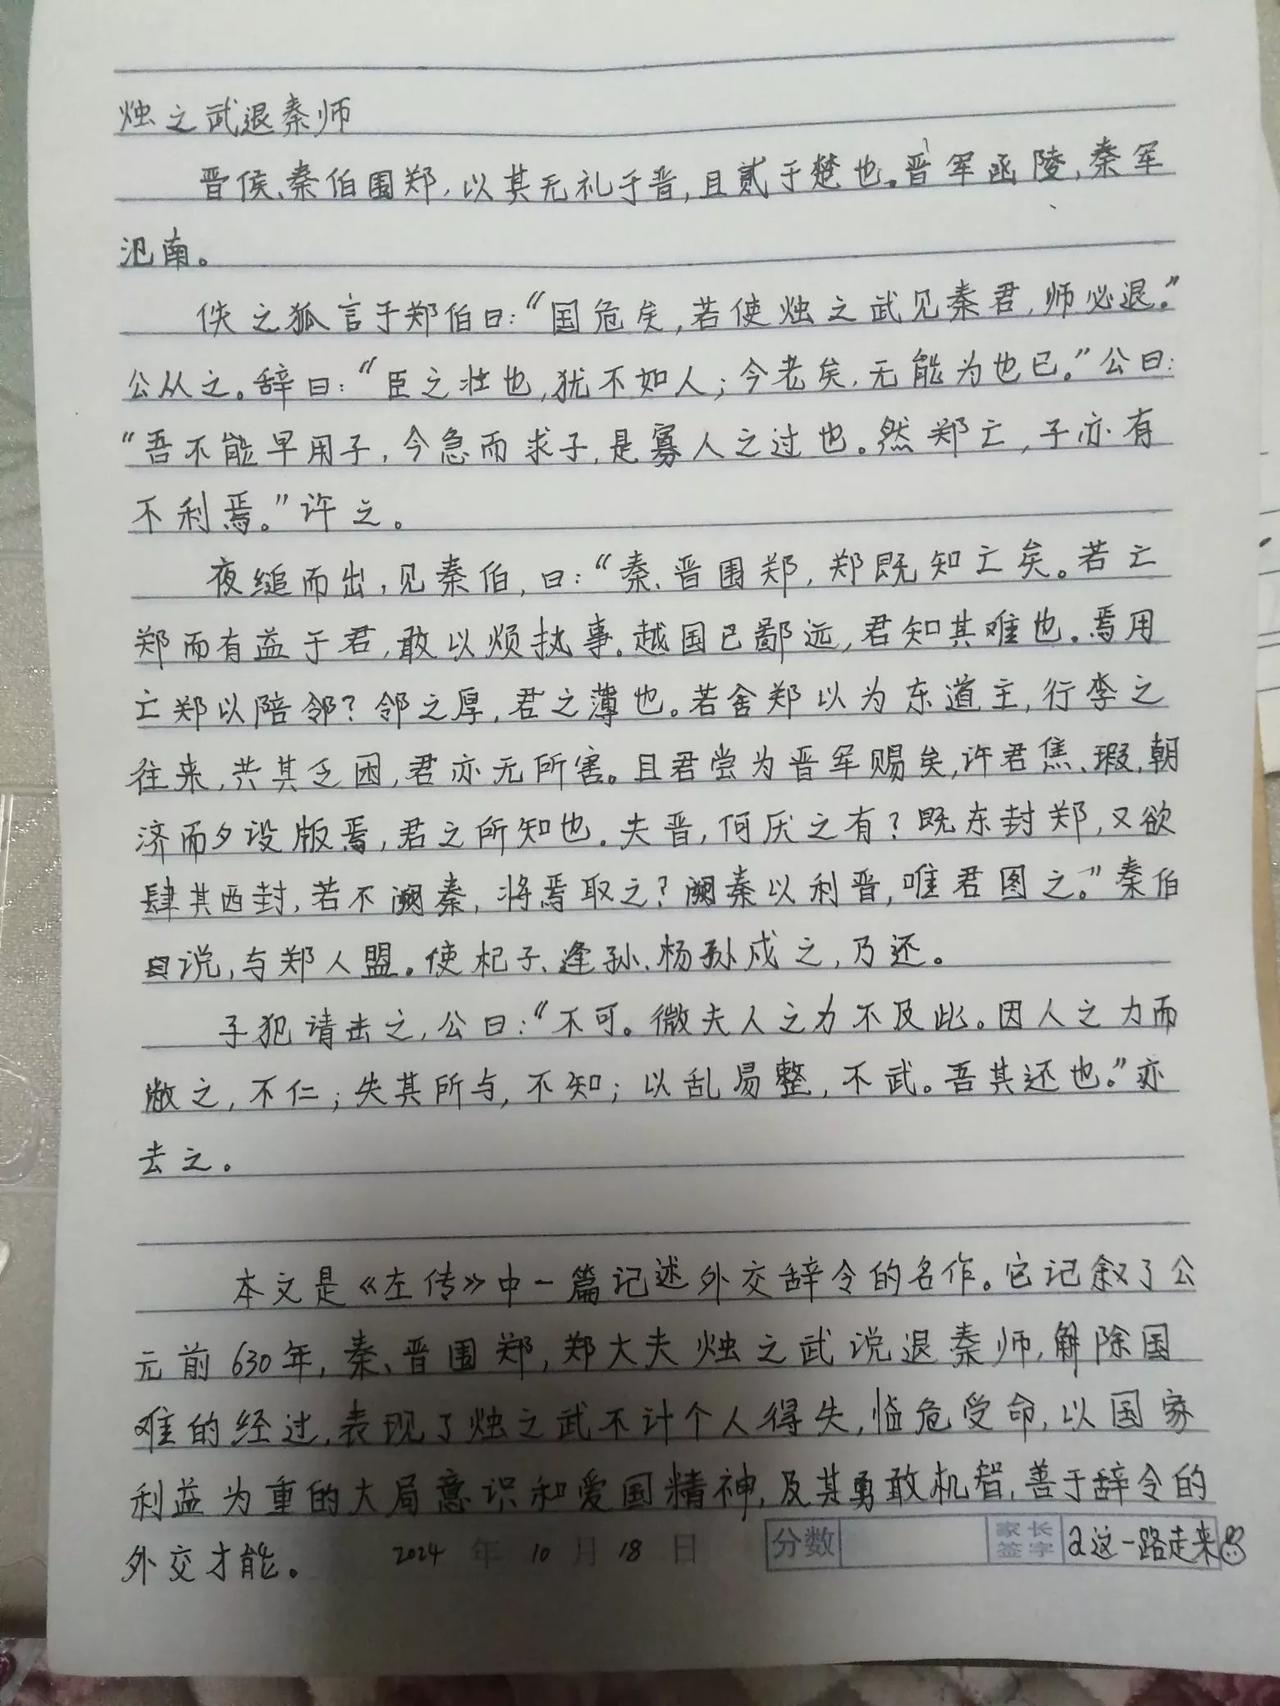 烛之武退秦师
晋侯、秦伯围郑，以其无礼于晋，且贰于楚也。晋军函陵，秦军
氾南。
佚之狐言于郑伯曰：“国危矣，若使烛之武见秦君，师必退。”
公从之。辞曰：“臣之壮也，犹不如人；今老矣，无能为也已。”公曰：
“吾不能早用子，今急而求子，是寡人之过也。然郑亡，子亦有
不利焉。”许之。
夜缒而出，见秦伯，曰：“秦、晋围郑，郑既知亡矣。若亡
郑而有益于君，敢以烦执事。越国已鄙远，君知其难也。焉用
亡郑以陪邻？邻之厚，君之薄也。若舍郑以为东道主，行李之
往来，共其乏困，君亦无所害。且君尝为晋军赐矣，许君焦、瑕，朝
济而夕设版焉，君之所知也。夫晋，何厌之有？既东封郑，又欲
肆其西封，若不阙秦，将焉取之？阙秦以利晋，唯君图之。”秦伯
曰说，与郑人盟。使杞子、逢孙、杨孙戍之，乃还。
子犯请击之，公曰：“不可。微夫人之力不及此。因人之力而
敝之，不仁；失其所与，不知；以乱易整，不武。吾其还也。”亦
去之。
本文是《左传》中一篇记述外交辞令的名作。它记叙了公
元前630年，秦、晋围郑，郑大夫烛之武说退秦师，解除国
难的经过，表现了烛之武不计个人得失，临危受命，以国家
利益为重的大局意识和爱国精神，及其勇敢机智，善于辞令的
外交才能。 2024年10月18日 分数 家长签字 a这一路走来